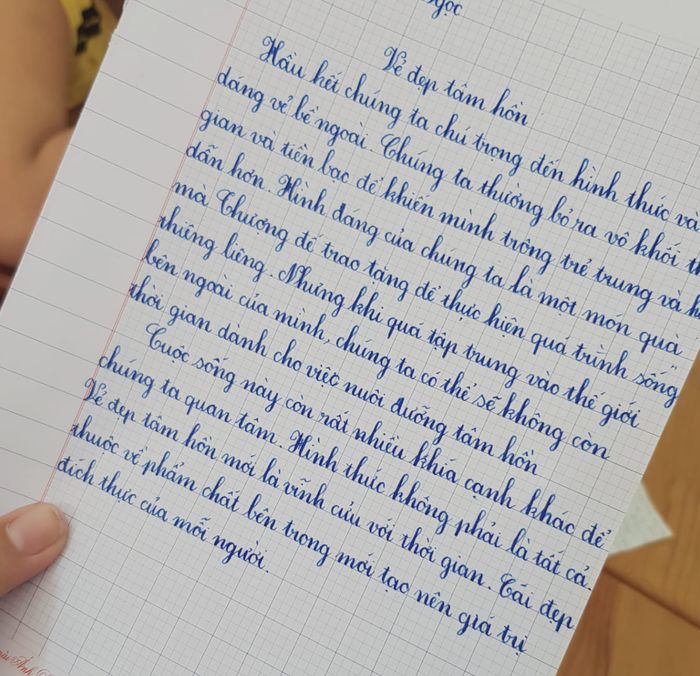 gọc
Vẻ đẹp tâm hồn
Hầu hết chúng ta chú trọng đến hình thức và
dáng vẻ bề ngoài. Chúng ta thường bỏ ra vô khối th
gian và tiền bạc để khiến mình trông trẻ trung và h
dẫn hơn. Hình dáng của chúng ta là một món quà
mà Thượng đế trao tặng để thực hiện quá trình sống
thiêng liêng. Nhưng khi quá tập trung vào thế giới
bên ngoài của mình, chúng ta có thể sẽ không còn
thời gian dành cho việc nuôi dưỡng tâm hồn
Cuộc sống này còn rất nhiều khía cạnh khác để
chúng ta quan tâm. Hình thức không phải là tất cả.
Vẻ đẹp tâm hồn mới là vĩnh cửu với thời gian. Cái đẹp
thuộc về phẩm chất bên trong mới tạo nên giá trị
đích thực của mỗi người.